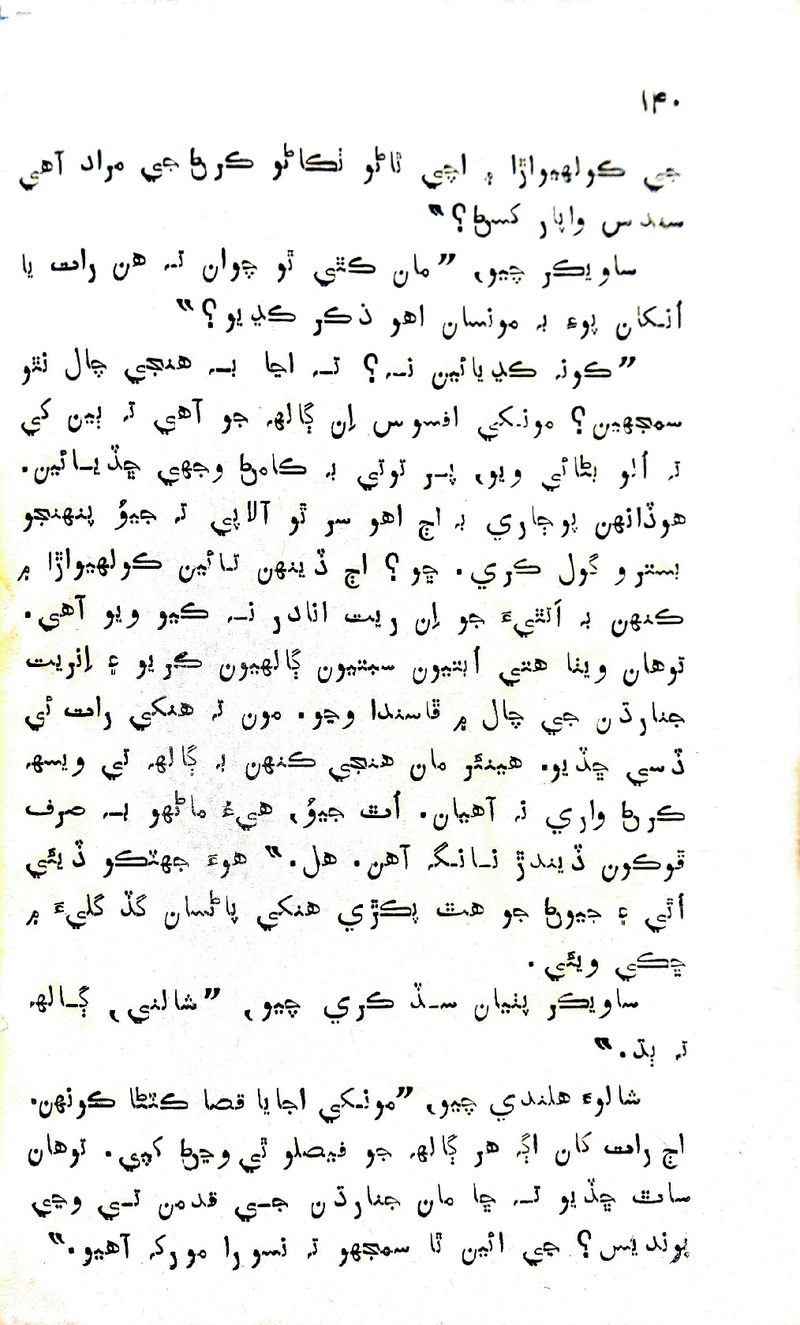 ۱۴۰
جي ڪولهيواڙا ۾ اچي ٿاڻو ٺڪاڻو ڪرڻ جي مراد آهي
سندس واپار کسڻ؟”
ساويڪر چيو، ”مان ڪٿي ٿو چوان تہ هن رات يا
اُنکان پوءِ بہ مونسان اهو ذڪر ڪڍيو؟”
”ڪونہ ڪڍيائين نہ؟ تہ اڃا بہ هنجي چال نٿو
سمجهين؟ مونکي افسوس اِن ڳالهہ جو آهي تہ ٻين کي
تہ اُلو بڻائي ويو، پر توتي بہ ڪامڻ وجهي ڇڏيائين.
هوڏانهن پوڄاري بہ اڄ اهو سر ٿو آلاپي تہ جيؤ پنهنجو
بسترو گول ڪري. ڇو؟ اڄ ڏينهن تائين ڪولهيواڙا ۾
ڪنهن بہ اُتٿيءَ جو اِن ريت انادر نہ ڪيو ويو آهي.
توهان ويٺا هتي اُبتيون سبتيون ڳالهيون ڪريو ۽ اِنريت
جنارڌن جي چال ۾ ڦاسندا وڃو. مون تہ هنکي رات ئي
ڏسي ڇڏيو. هينئر مان هنجي ڪنهن بہ ڳالهہ تي ويسهہ
ڪرڻ واري نہ آهيان. اُٿ جيؤ، هيءُ ماڻهو بہ صرف
ڦوڪون ڏيندڙ نانگہ آهن. هل.” هوءَ جهٽڪو ڏيئي
اُٿي ۽ جيوڻ جو هٿ پڪڙي هنکي پاڻسان گڏ گليءَ ۾
ڇڪي ويئي.
ساويڪر پٺيان سڏ ڪري چيو، ”شالني، ڳالهہ
تہ ٻڌ.”
شالوءَ هلندي چيو، ”مونکي اجايا قصا ڪٿڻا ڪونهن.
اڄ رات کان اڳہ هر ڳالهہ جو فيصلو ٿي وڃڻ کپي. توهان
ساٿ ڇڏيو تہ ڇا مان جنارڌن جي قدمن تي وڃي
پونديس؟ جي ائين ٿا سمجهو تہ نسورا مورکہ آهيو.”